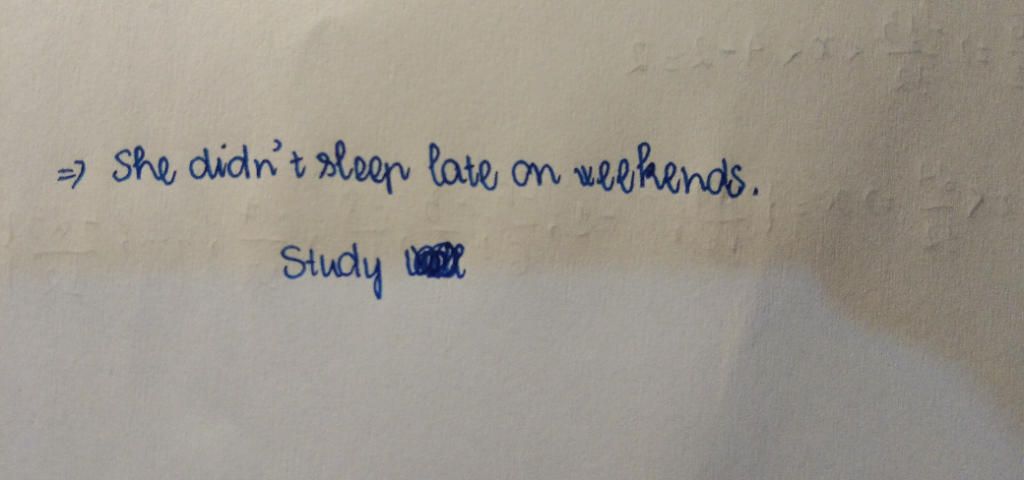 => She didn't sleep late on weekends.
Study